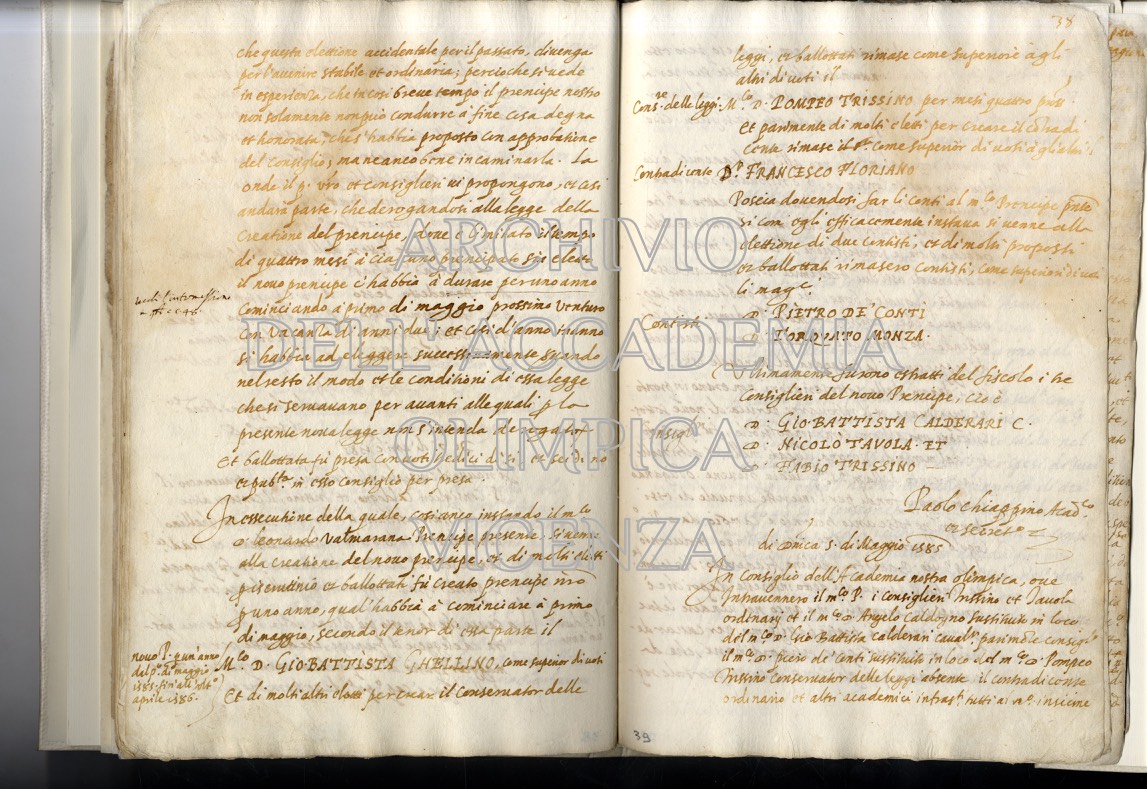 che questa elettione accidentale per il passato, divenga
per l'avenire stabile et ordinaria; percioche si vede
in esperienza, che in così breve tempo il prencipe nostro
non solamente non può condurre à fine cosa degna
et honorata, che s'habbia proposto con approbatione
del Consiglio; ma neanco bene incaminarla. La
onde il p. vro et Consiglieri vi propongono, et così
andarà parte, che derogandosi alla legge della
Creatione del prencipe, dove è limitato il tempo
di quattro mesi à ciascuno principato sia eletto
il novo prencipe c'habbia à durare per uno anno
Cominciando à primo di maggio prossimo venturo
con vacanza di anni due; et così d'anno in anno
si habbia ad eleggere successivamente servando
nel resto il modo et le conditioni di essa legge
che si servavano per avanti alle quali p la
presente nova legge non s'intenda derogato
Et ballottata fù presa con voti sedici di sì et sei di no
et pub.ta in esso Consiglio per presa.
In essecutione della quale, così anco instando il m.co
D. Leonardo Valmarana Prencipe presente si venne
alla creatione del novo prencipe, et di molti eletti
p scruttinio et ballottati fù creato prencipe nro
p uno anno, qual habbia à cominciare à primo
di maggio, secondo il tenor di essa parte il
novo P. p un'anno
dal p.o di maggio
1585. fin all' ult.o
aprile 1586.
M.co D. GIO: BATTISTA GHELLINO, come superior di voti
Et di molti altri eletti per crear il Conservator delle
38
leggi, et ballottati rimase come superiore à gli
altri di voti il
Cons.re delle leggi M.co D. POMPEO TRISSINO per mesi quattro pross.
Et parimente di molti eletti per creare il Contradi
cente rimase il come superior di voti à gli altri
Contradicente D. FRANCESCO FLORIANO
Poscia dovendosi far li conti al m.co Prencipe pnte
si con egli efficacemente instava si venne alla
elettione di due Contisti, et di molti proposti
et ballottati rimasero contisti, come superiori di voti
li mag.ci
Contisti
D. PIETRO DE' CONTI
D. TORQUATO MONZA.
Ultimamente furono estratti del fiscolo i tre
Consiglieri del novo Prencipe, cioè
Consigl.
D. GIO: BATTISTA CALDERARI C.
D. NICOLÒ TAVOLA. ET
D. FABIO TRISSINO
Paolo Chiappino Acad.co
et secret.o
di Dnica 5. di Maggio 1585
In Consiglio dell'Academia nostra olimpica, ove
Intravennero il m.co P. i Consiglieri Trissino et Tavola
ordinarij et il m.co D. Angelo Caldogno sustituito in loco
del m.co D. Gio: Battista Calderari caval.r parimente consigl.re
il m.co D. piero de conti sustituito in loco del m.co D. Pompeo
Trissino Conservator delle leggi absente il contradicente
ordinario et altri academici infras.ti tutti al n.o insieme
39
ARCHIVIO
DELL'ACCADEMIA
OLIMPICA
VICENZA